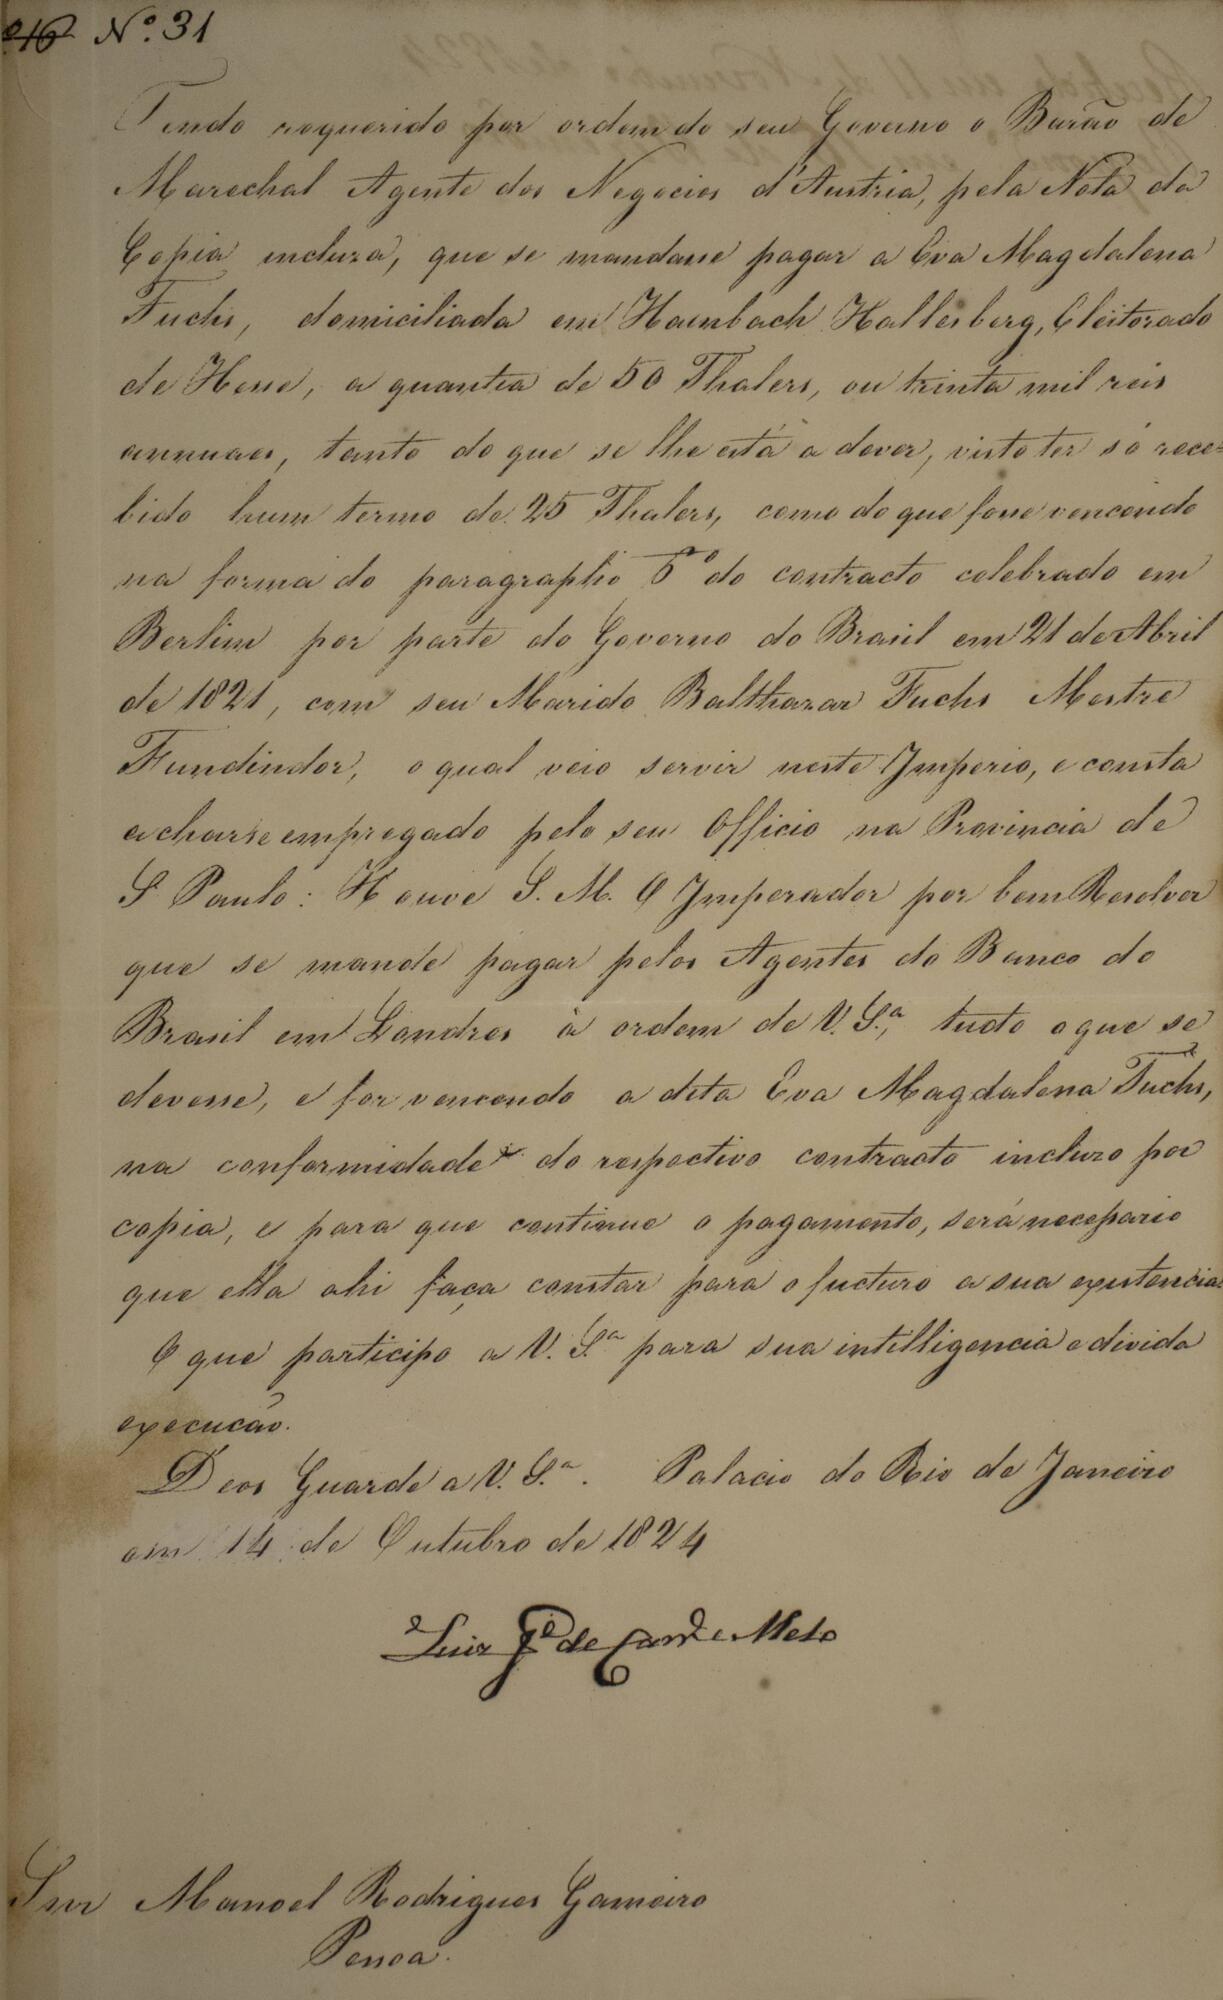 16 Nº. 31
Tendo requerido por ordem do seu Governo o Barão de
Marechal Agente dos Negocios d'Austria, pela Nota da
Copia incluza, que se mandasse pagar a Eva Magdalena
Fuchs, domiciliada em Hambach Hallesberg, Eleitorado
de Hesse, a quantia de 50 Thalers, ou trinta mil reis
annuaes, tanto do que se lhe está a dever, visto ter só rece=
bido hum termo de 25 Thalers, como do que fosse vencendo
na forma do paragrapho 5º do contracto celebrado em
Berlim por parte do Governo do Brasil em 21 de Abril
de 1821, com seu Marido Balthazar Fuchs Mestre
Fundindor, o qual veio servir neste Imperio, e consta
acharse empregado pelo seu Officio na Provincia de
S. Paulo: Houve S. M. O Imperador por bem Resolver
que se mande pagar pelos Agentes do Banco do
Brasil em Londres à ordem de V. S.ª, tudo o que se
devesse, e for vencendo a dita Eva Magdalena Fuchs,
na conformidade do respectivo contracto incluzo por
copia, e para que continue o pagamento, será necessario
que ella ahi faça constar para o fucturo a sua existencia.
O que participo a V. S.ª para sua intilligencia e divida
execucão.
Deos Guarde a V. S.ª. Palacio do Rio de Janeiro
em 14 de Outubro de 1824
Luiz Jº de Carvº e Mello
Snr Manoel Rodrigues Gameiro
Pessoa.